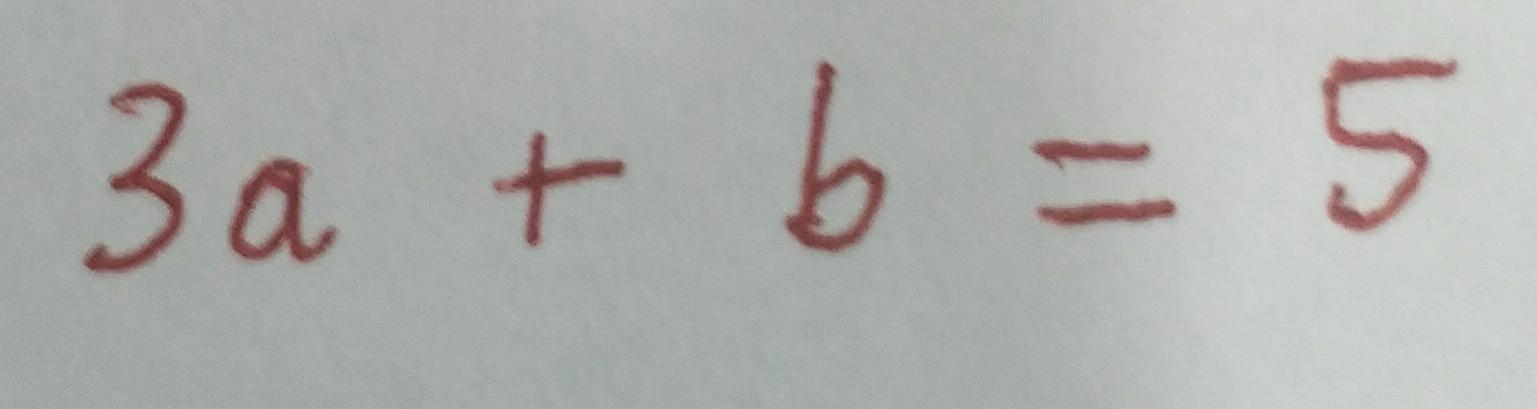 3a + b = 5